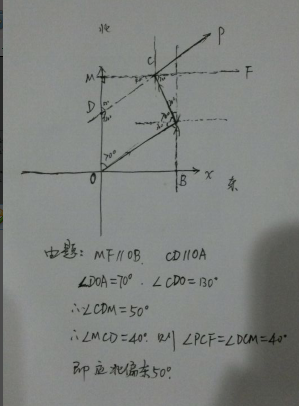 北
P
C
M
F
D
A
70°
O
B
x
东
由题: MF∥OB. CD∥OA
∠DOA=70°. ∠CDO=130°
∴∠CDM=50°
∴∠MCD=40°. 则 ∠PCF=∠DCM=40°
即应北偏东50°.